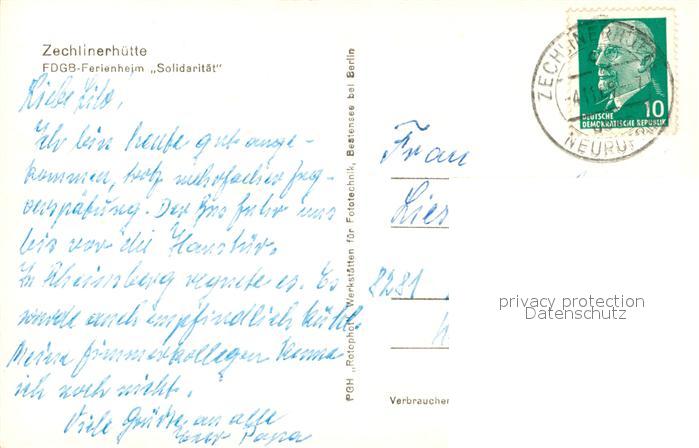 Zechlinerhütte
FDGB-Ferienheim „Solidarität“
Liebe Lilo,
Ich bin heute gut ange-
kommen, trotz mehrfacher Zug-
verspätung. Der Bus fuhr uns
bis vor die Haustür.
In Rheinsberg regnete es. Es
wurde auch empfindlich kühl.
Meine Zimmerkollegen kenne
ich noch nicht.
Viele Grüße an alle
Euer Papa
PGH „Rotophot“ Werkstätten für Fototechnik, Bestensee bei Berlin
Frau
Lies
2281
Verbraucher
ZECHLINERHÜTTE
NEURUPPIN
10
DEUTSCHE
DEMOKRATISCHE REPUBLIK
privacy protection
Datenschutz